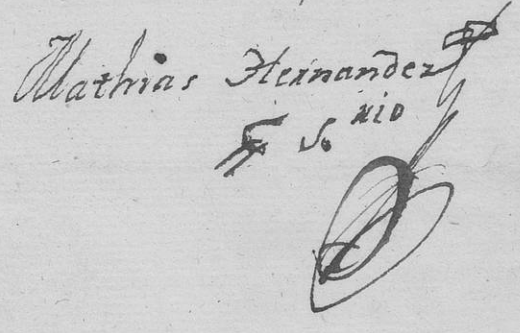 Mathias Hernandez
S.rio